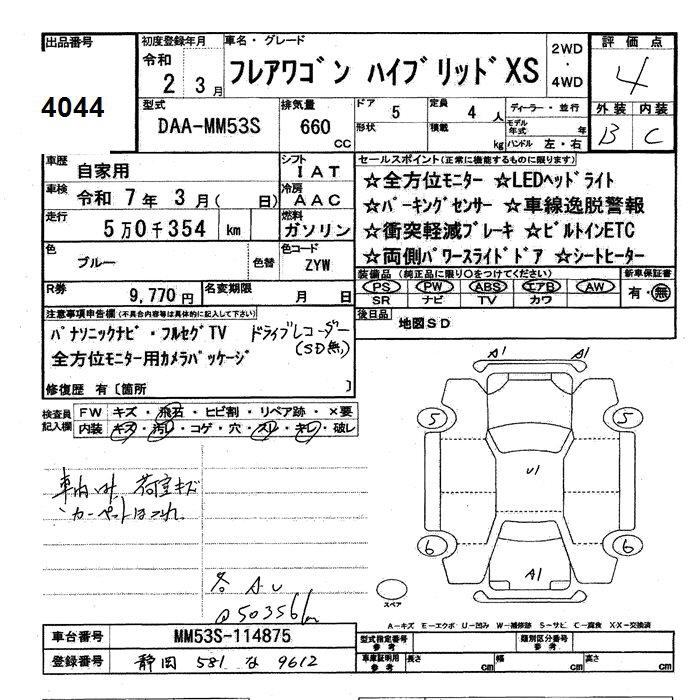 出品番号 4044
初度登録年月 令和 2年 3月
車名・グレード フレアワゴン ハイブリッド XS
2WD・4WD
評価点 4
型式 DAA-MM53S
排気量 660 cc
ドア 5
形状
定員 4人
積載 kg
ディーラー・並行
モデル年式 年
ハンドル 左・右
外装 B
内装 C
車歴 自家用
シフト IAT
車検 令和 7年 3月( 日)
冷房 AAC
走行 5万0千354 km
燃料 ガソリン
色 ブルー 色替
色コード ZYW
R券 9,770円
名変期限 月 日
セールスポイント(正常に機能するものに限ります)
☆全方位モニター ☆LEDヘッドライト
☆パーキングセンサー ☆車線逸脱警報
☆衝突軽減ブレーキ ☆ビルトインETC
☆両側パワースライドドア ☆シートヒーター
装備品 (純正品に限り〇をつけてください)
PS PW ABS エアB AW
SR ナビ TV カワ
新車保証書 有・無
後日品 地図SD
注意事項申告欄(不具合内容等は具体的に記入して下さい)
パナソニックナビ・フルセグTV ドライブレコーダー
(SD無)
全方位モニター用カメラパッケージ
修復歴 有〔箇所 〕
検査員記入欄
FW キズ・飛石・ヒビ割・リペア跡・×要
内装 キズ・汚レ・コゲ・穴・スレ・キレ・破レ
車内 荷室キズ
カーペットはつれ
A U
@50356km
A1 A1
5 5
U1
6 6
A1
スペア
A-キズ E-エクボ U-凹み W-補修跡 S-サビ C-腐食 X・XX-交換済
車台番号 MM53S-114875
登録番号 静岡 581 な 9612
型式指定番号 参考
類別区分番号 参考
車庫証明用 参考 長さ cm 幅 cm 高さ cm